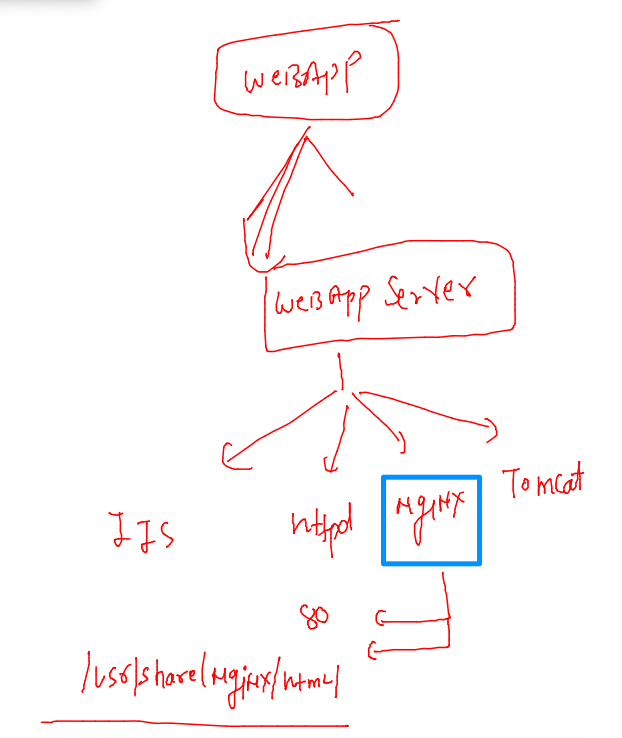 WEBAPP
WEBAPP Server
IIS
httpd
NgiNX
Tomcat
80
/usr/share/NgiNX/html/